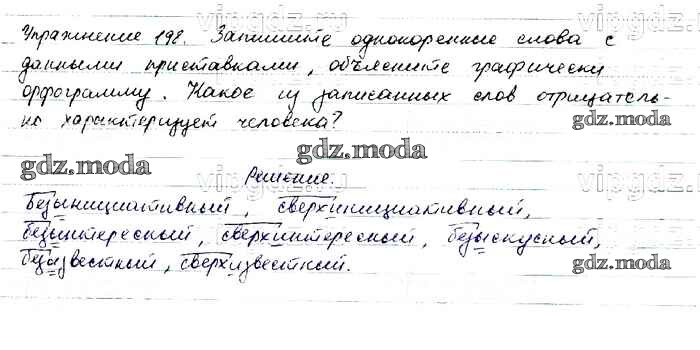 vipgdz.ru vipgdz.ru
Упражнение 198. Запишите однокоренные слова с
данными приставками, объясните графически
орфограмму. Какое из записанных слов отрицатель-
но характеризует человека?
gdz.moda
gdz.moda gdz.moda
vipgdz.ru Решение. vipgdz.ru
Безынициативный, сверхинициативный,
безынтересный, сверхинтересный, безыскусный,
безызвестный, сверхизвестный.
gdz.moda gdz.moda
vipgdz.ru vipgdz.ru